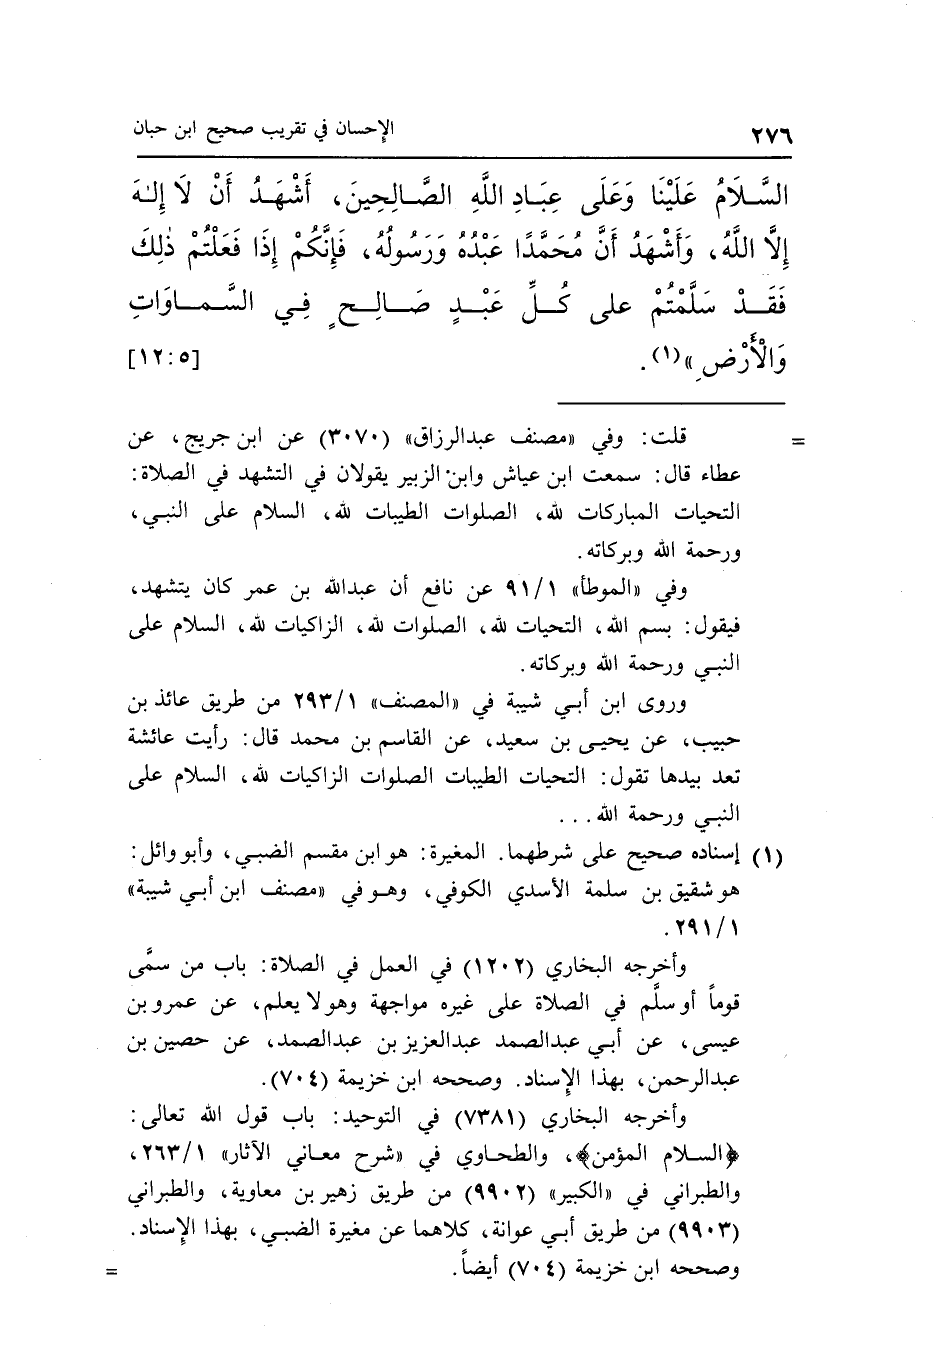 ٢٧٦ الإحسان في تقريب صحيح ابن حبان
السَّلَامُ عَلَيْنَا وَعَلَى عِبَادِ اللَّهِ الصَّالِحِينَ، أَشْهَدُ أَنْ لَا إِلهَ
إِلَّا اللَّهُ، وَأَشْهَدُ أَنَّ مُحَمَّدًا عَبْدُهُ وَرَسُولُهُ، فَإِنَّكُمْ إِذَا فَعَلْتُمْ ذٰلِكَ
فَقَدْ سَلَّمْتُمْ على كُلِّ عَبْدٍ صَالِحٍ فِي السَّمَاوَاتِ
وَالْأَرْضِ»(١). [١٢:٥]
= قلت: وفي «مصنف عبدالرزاق» (٣٠٧٠) عن ابن جريج، عن
عطاء قال: سمعت ابن عياش وابن الزبير يقولان في التشهد في الصلاة:
التحيات المباركات لله، الصلوات الطيبات لله، السلام على النبي،
ورحمة الله وبركاته.
وفي «الموطأ» ٩١/١ عن نافع أن عبدالله بن عمر كان يتشهد،
فيقول: بسم الله، التحيات لله، الصلوات لله، الزاكيات لله، السلام على
النبي ورحمة الله وبركاته.
وروى ابن أبي شيبة في «المصنف» ٢٩٣/١ من طريق عائذ بن
حبيب، عن يحيى بن سعيد، عن القاسم بن محمد قال: رأيت عائشة
تعد بيدها تقول: التحيات الطيبات الصلوات الزاكيات لله، السلام على
النبي ورحمة الله...
(١) إسناده صحيح على شرطهما. المغيرة: هو ابن مقسم الضبي، وأبو وائل:
هو شقيق بن سلمة الأسدي الكوفي، وهو في «مصنف ابن أبي شيبة»
٢٩١/١.
وأخرجه البخاري (١٢٠٢) في العمل في الصلاة: باب من سمَّى
قوماً أو سلَّم في الصلاة على غيره مواجهة وهو لا يعلم، عن عمرو بن
عيسى، عن أبي عبدالصمد عبدالعزيز بن عبدالصمد، عن حصين بن
عبدالرحمن، بهذا الإسناد. وصححه ابن خزيمة (٧٠٤).
وأخرجه البخاري (٧٣٨١) في التوحيد: باب قول الله تعالى:
﴿السلام المؤمن﴾، والطحاوي في «شرح معاني الآثار» ٢٦٣/١،
والطبراني في «الكبير» (٩٩٠٢) من طريق زهير بن معاوية، والطبراني
(٩٩٠٣) من طريق أبي عوانة، كلاهما عن مغيرة الضبي، بهذا الإسناد.
وصححه ابن خزيمة (٧٠٤) أيضاً. =